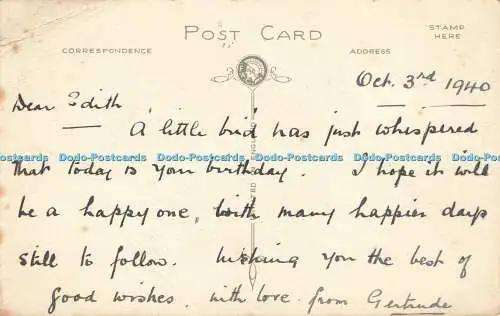 POST CARD
STAMP
HERE
CORRESPONDENCE
ADDRESS
Oct. 3rd 1940
Dear Edith
A little bird has just whispered
that today is your birthday. I hope it will
be a happy one, with many happier days
still to follow. Wishing you the best of
good wishes. with love from Gertrude
Dodo-Postcards Dodo-Postcards Dodo-Postcards Dodo-Postcards Dodo-Postcards